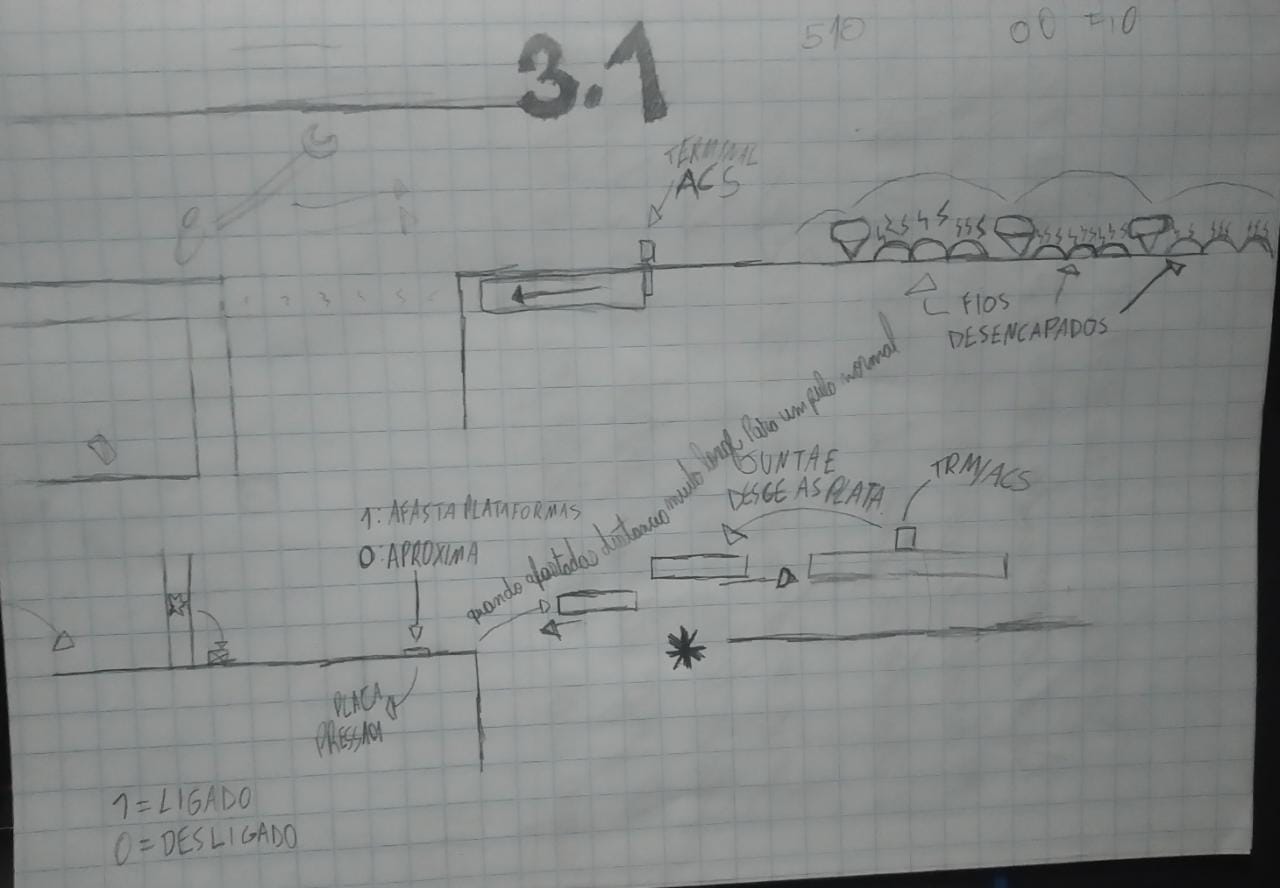 510
3.1
TERMINAL
ACS
FIOS
DESENCAPADOS
quando afastadas distancia muito longe para um pulo normal
JUNTA E
DESCE AS PLATA.
TRM/ACS
1: AFASTA PLATAFORMAS
0: APROXIMA
PLACA
PRESSÃO
1 = LIGADO
0 = DESLIGADO